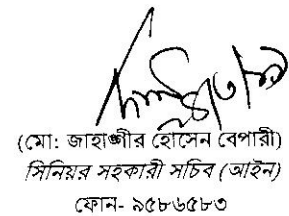 (মো: জাহাঙ্গীর হোসেন বেপারী)
সিনিয়র সহকারী সচিব (আইন)
ফোন- ৯৫৮৬৫৮৩